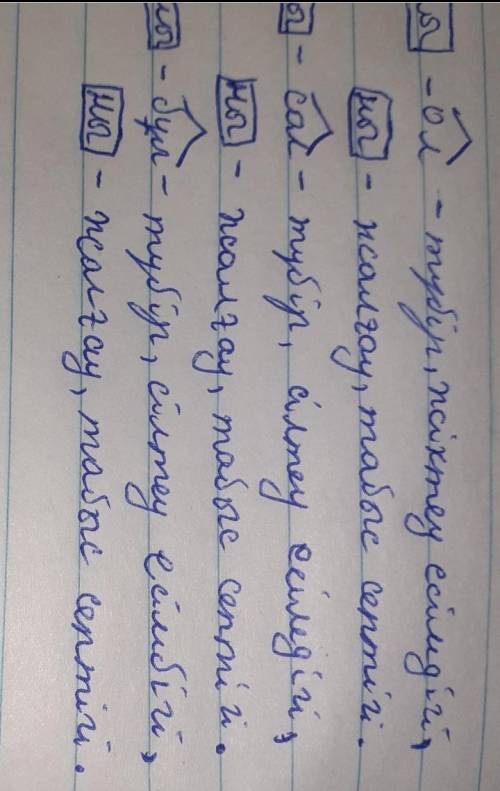 ны - ол - түбір, жіктеу есімдігі,
ны - жалғау, табыс септігі.
ны - сол - түбір, сілтеу есімдігі,
ны - жалғау, табыс септігі.
ны - бұл - түбір, сілтеу есімбігі,
ны - жалғау, табыс септігі.